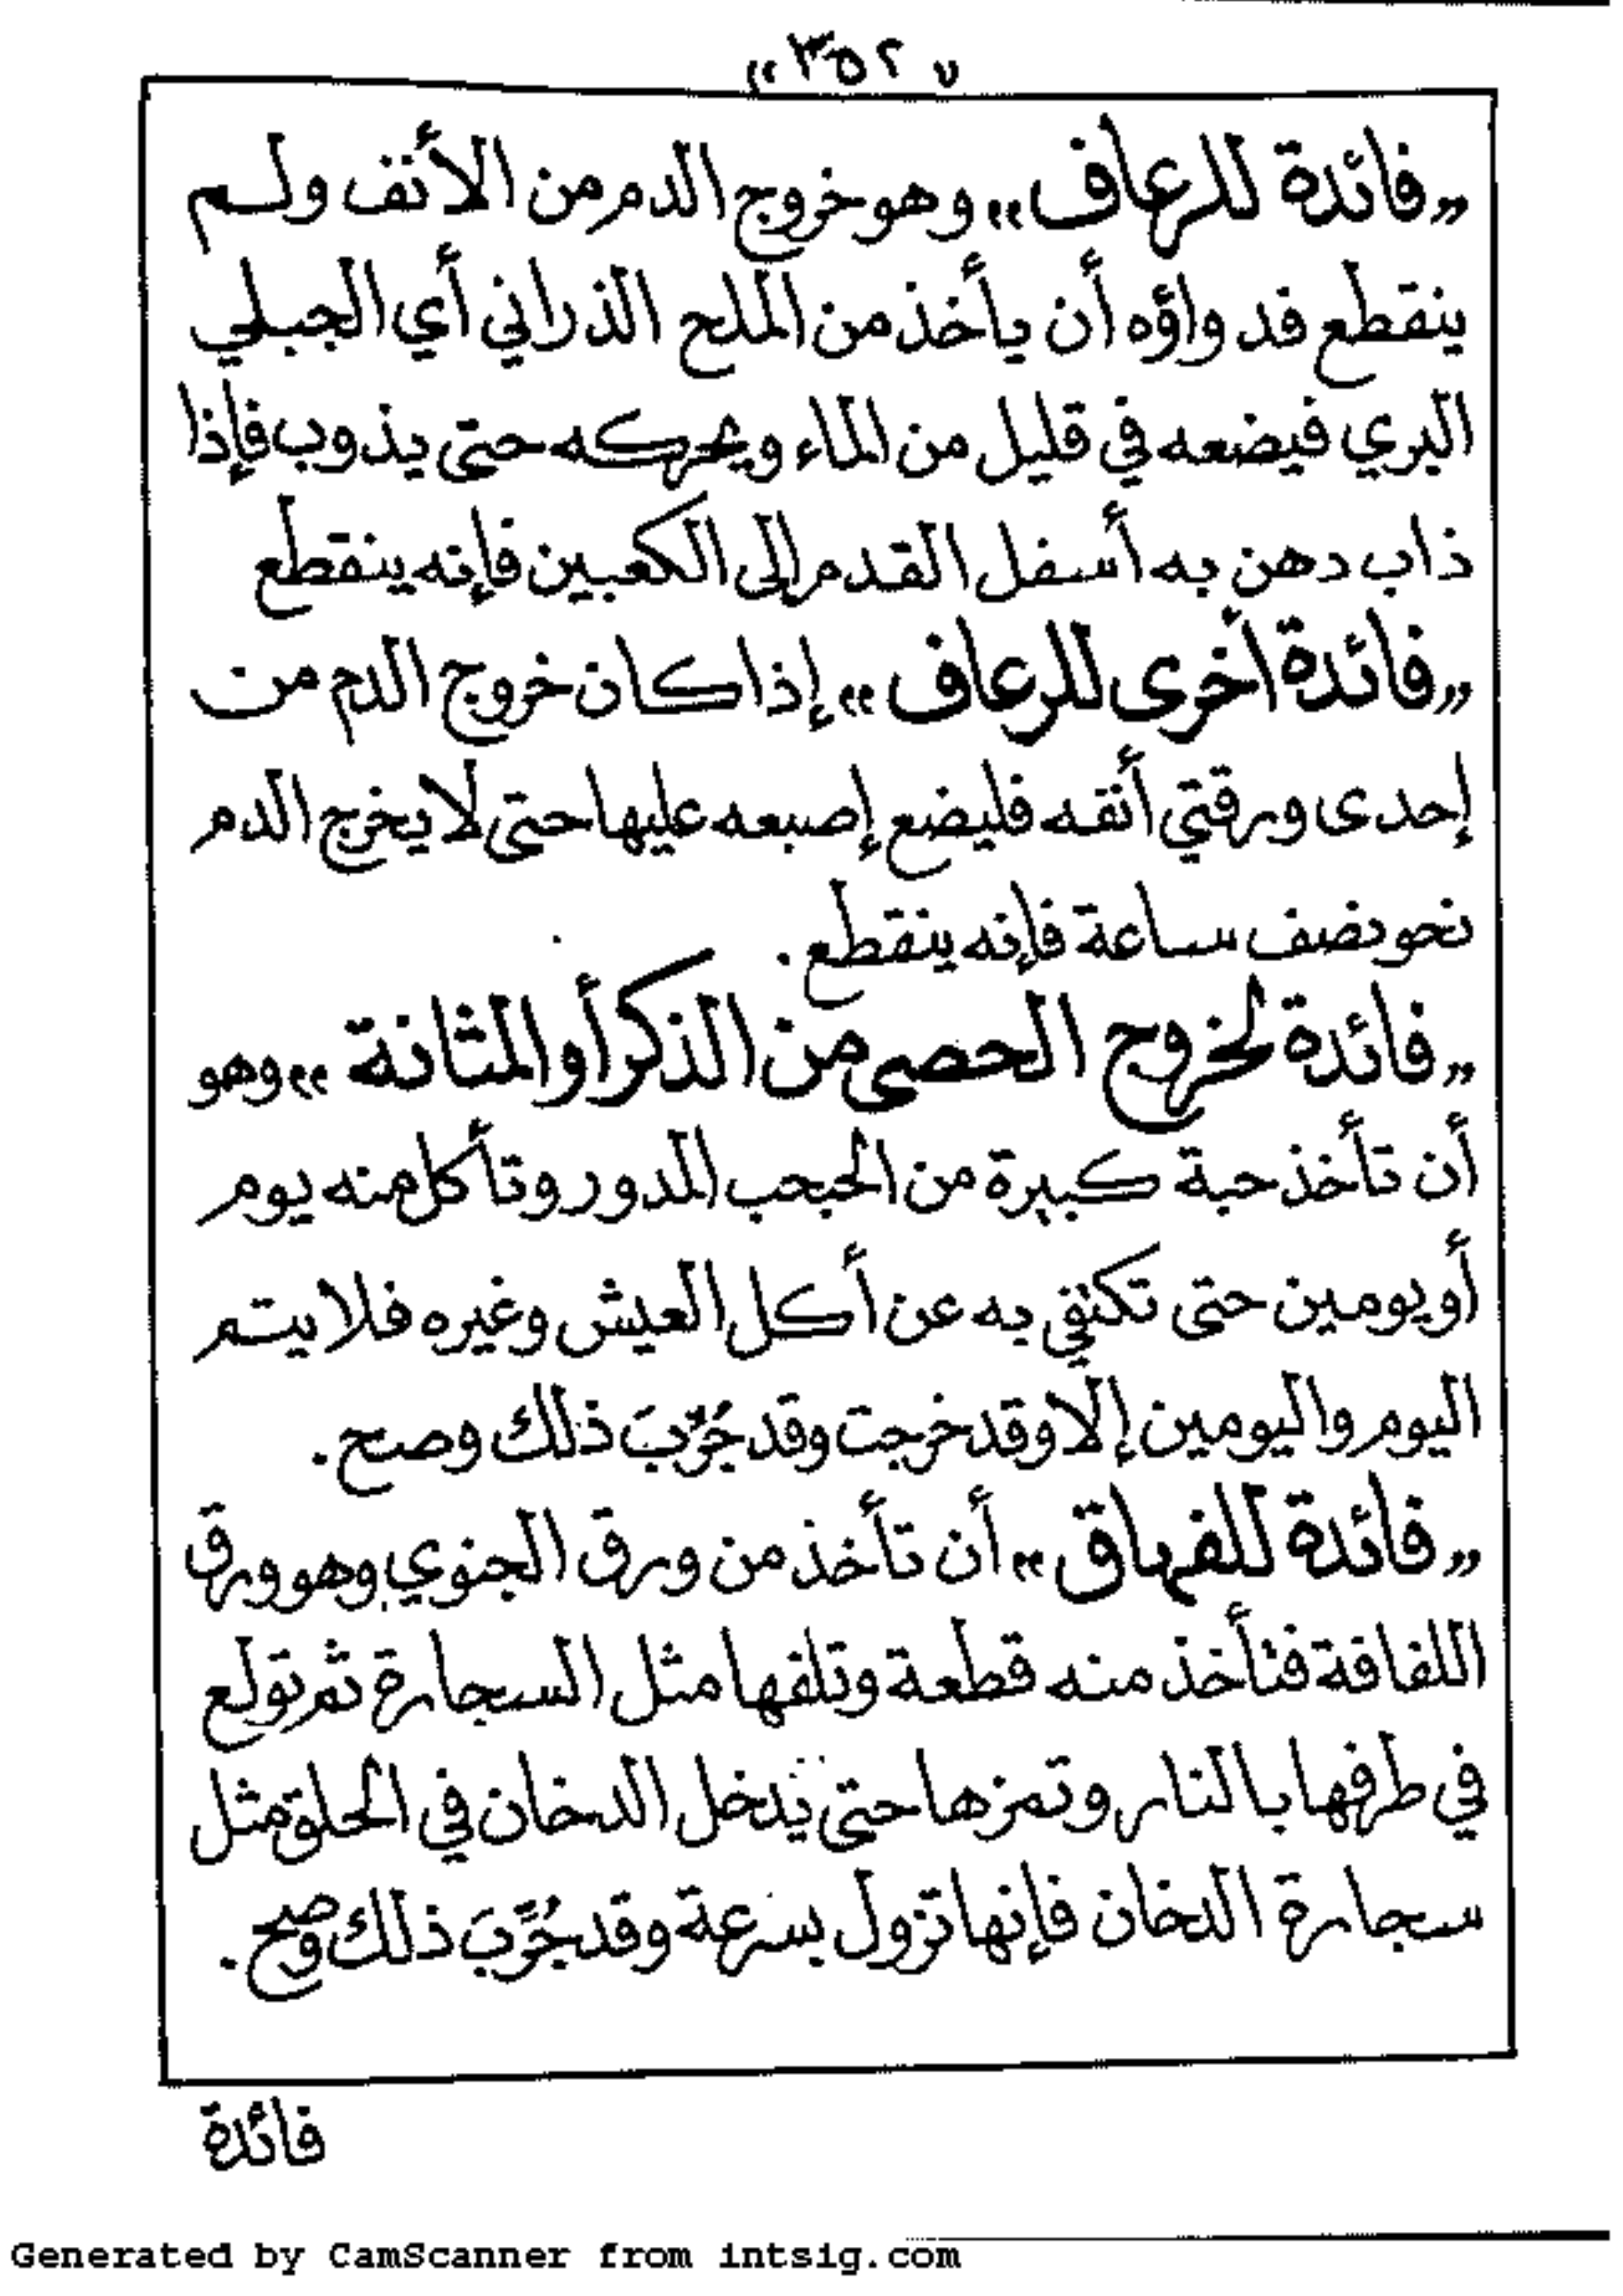 «٣٥٢»
«فائدة للرعاف» وهو خروج الدم من الأنف ولم
ينقطع فدواؤه أن يأخذ من الملح الذراني أي الجبلي
البري فيضعه في قليل من الماء ويحركه حتى يذوب فإذا
ذاب دهن به أسفل القدم إلى الكعبين فإنه ينقطع
«فائدة أخرى للرعاف» إذا كان خروج الدم من
إحدى ورقتي أنفه فليضع إصبعه عليها حتى لا يخرج الدم
نحو نصف ساعة فإنه ينقطع.
«فائدة لخروج الحصى من الذكر أو المثانة» وهو
أن تأخذ حبة كبيرة من الحبحب المدور وتأكل منه يوم
أو يومين حتى تكتفي به عن أكل العيش وغيره فلا يتم
اليوم واليومين إلا وقد خرجت وقد جُرِّبَ ذلك وصح.
«فائدة للفهاق» أن تأخذ من ورق الجنوي وهو ورق
اللفافة فتأخذ منه قطعة وتلفها مثل السجارة ثم تولع
في طرفها بالنار وتمزها حتى يدخل الدخان في الحلق مثل
سجارة الدخان فإنها تزول بسرعة وقد جُرِّبَ ذلك وصح.
فائدة
Generated by CamScanner from intsig.com